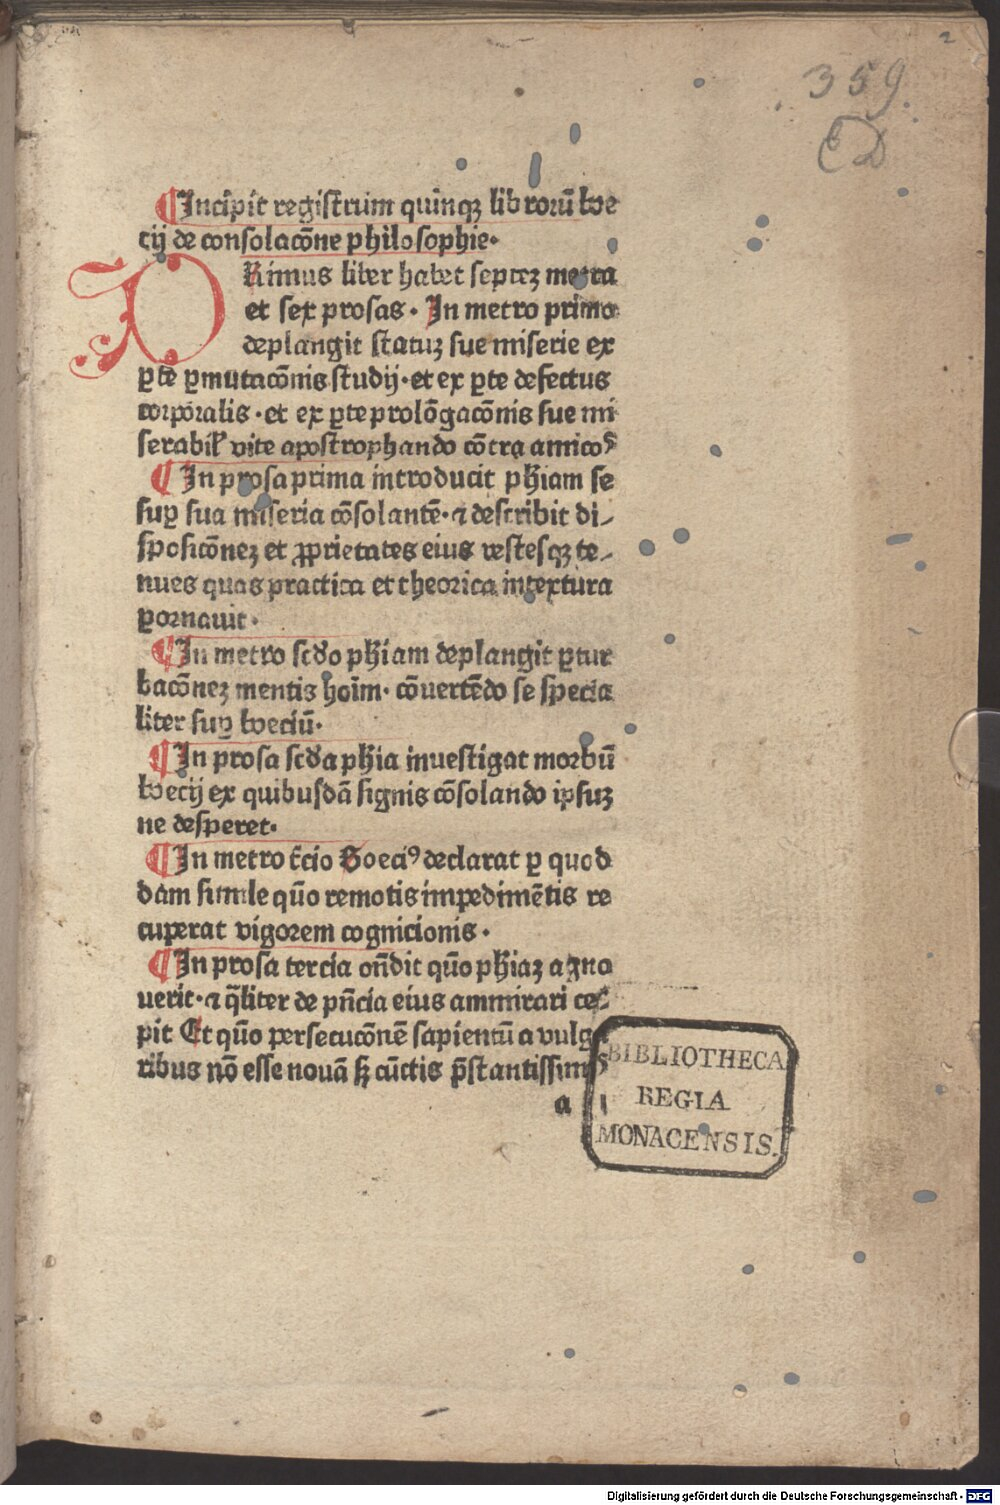 2
359.
CD
¶Incipit registrum quinqꝫ librorū boe
cij de consolacōne philosophie.
PRimus liber habet septeꝫ metra
et sex prosas. In metro primo
deplangit statuꝫ sue miserie ex
ꝑte ꝑmutacōnis studij. et ex ꝑte defectus
corporalis. et ex ꝑte prolōgacōnis sue mi
serabiꝉ vite apostrophando cōtra amicoꝝ
¶In prosa prima introducit phīam se
suꝑ sua miseria cōsolantē. ⁊ describit di⸗
sposicōneꝫ et ꝓprietates eius vestesqꝫ te⸗
nues quas practica et theorica intextura
ꝑornauit.
¶In metro scḏo phīam deplangit ꝑtur
bacōneꝫ mentis hoīm. cōuertēdo se specia
liter suꝑ boeciū.
¶In prosa scḏa phīa inuestigat morbū
boecij ex quibusdā signis cōsolando ipsuꝫ
ne desperet.
¶In metro t̄cio Boeciꝰ declarat ꝑ quod
dam simile quō remotis impedimētis re
cuperat vigorem cognicionis.
¶In prosa tercia on̄dit quō phīaꝫ agno
uerit. ⁊ q̄liter de pn̄cia eius ammirari ce⸗
pit Et quō persecucōnē sapientū a vulga
ribus nō esse nouā sꝫ cūctis p̄stantissimꝭ
a
BIBLIOTHECA
REGIA
MONACENSIS.
Digitalisierung gefördert durch die Deutsche Forschungsgemeinschaft - DFG